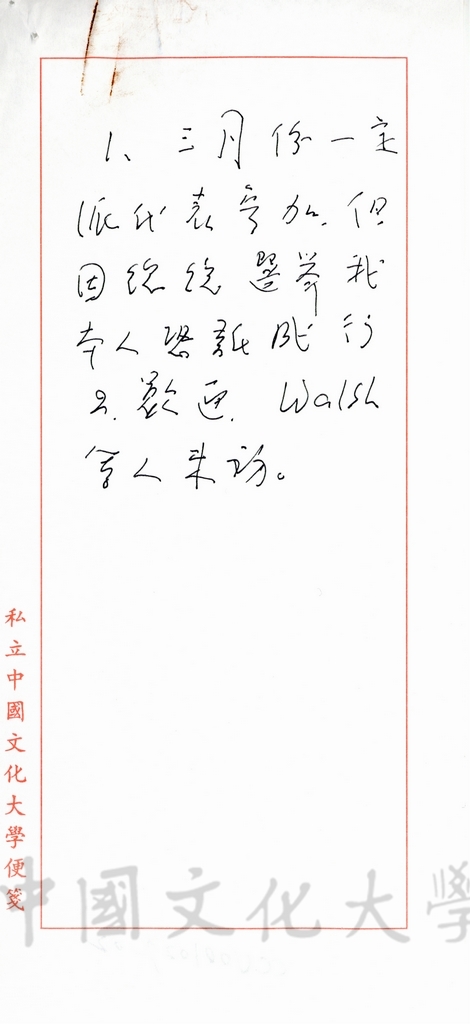 1、三月份一定
派代表參加.但
因總統選舉我
本人恐難成行
2.歡迎.Walsh
等人來訪。
私立中國文化大學便箋
中國文化大學